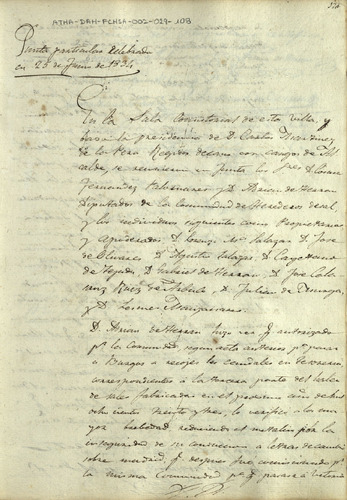 ATHA-DAH-FCHSA-002-029-108
Junta particular celebrada
en 25 de Junio de 1834
En la Sala Consistorial de esta Villa, y
bajo la presidencia de D. Carlos Martinez
de la Pera Regidor decano con cargos de Al
calde, se reunieron en Junta los Sres. D.
Fernandez Palomares y D. Adrian de Herran
Diputados de la Comunidad de Herederos de sal
y los individuos siguientes como Propietarios
y apoderados D. Lorenzo Ma. Salazar D. Jose
de Olivares D. Agustin Salazar D. Cayetano
de D. Gabriel de Herran D. Jose
Ruiz de D. Julian de
y D. Cosme
D. Adrian de Herran hizo ver q. autorizado
pr. la Comunidad, segun acta anterior pa. pasar
a Burgos a recojer los caudales en Tesoreria
correspondientes a la tercera parte del valor
de sales fabricadas en el proximo año de mil
ochocientos treinta y tres, lo verifico a la ma
yor brevedad reduciendo el metalico por la
inseguridad de su conduccion a letras de cambio
sobre y despues fue comisionado pr.
la misma Comunidad pa. q. pasara a Vitoria